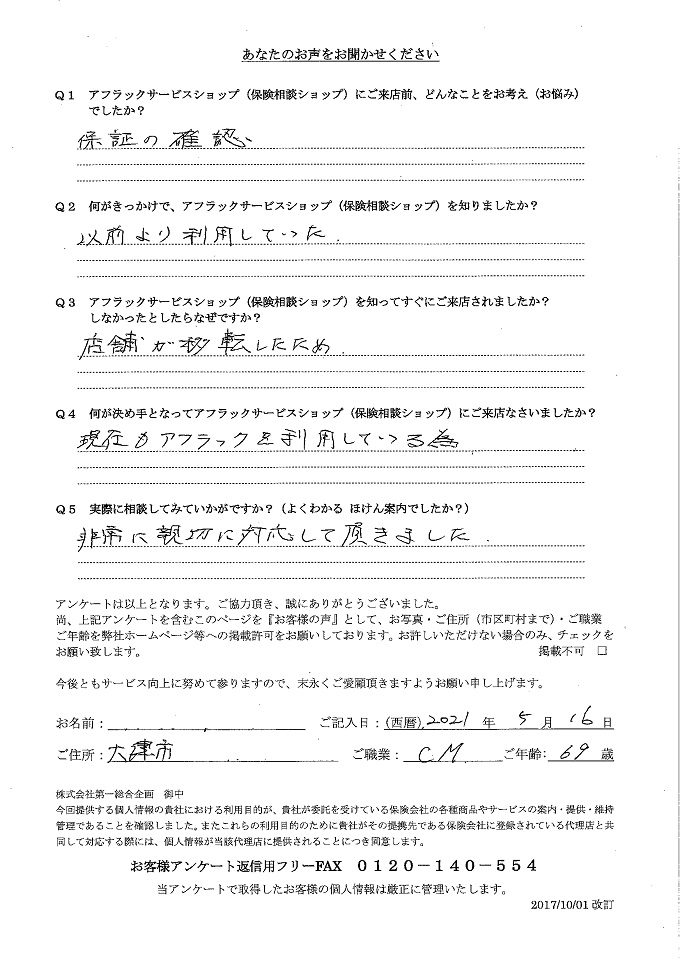 あなたのお声をお聞かせください
Q1 アフラックサービスショップ（保険相談ショップ）にご来店前、どんなことをお考え（お悩み）
でしたか？
保証の確認
Q2 何がきっかけで、アフラックサービスショップ（保険相談ショップ）を知りましたか？
以前より利用していった.
Q3 アフラックサービスショップ（保険相談ショップ）を知ってすぐにご来店されましたか？
しなかったとしたらなぜですか？
店舗が移転したため.
Q4 何が決め手となってアフラックサービスショップ（保険相談ショップ）にご来店なさいましたか？
現在もアフラックを利用している為
Q5 実際に相談してみていかがですか？（よくわかる ほけん案内でしたか？）
非常に親切に対応して頂きました.
アンケートは以上となります。ご協力頂き、誠にありがとうございました。
尚、上記アンケートを含むこのページを『お客様の声』として、お写真・ご住所（市区町村まで）・ご職業
ご年齢を弊社ホームページ等への掲載許可をお願いしております。お許しいただけない場合のみ、チェックを
お願い致します。 掲載不可 □
今後ともサービス向上に努めて参りますので、末永くご愛顧頂きますようお願い申し上げます。
お名前： ご記入日：（西暦）2021 年 5 月 16 日
ご住所：大津市 ご職業： CM ご年齢：69 歳
株式会社第一総合企画 御中
今回提供する個人情報の貴社における利用目的が、貴社が委託を受けている保険会社の各種商品やサービスの案内・提供・維持
管理であることを確認しました。またこれらの利用目的のために貴社がその提携先である保険会社に登録されている代理店と共
同して対応する際には、個人情報が当該代理店に提供されることにつき同意します。
お客様アンケート返信用フリーFAX 0120－140－554
当アンケートで取得したお客様の個人情報は厳正に管理いたします。
2017/10/01 改訂